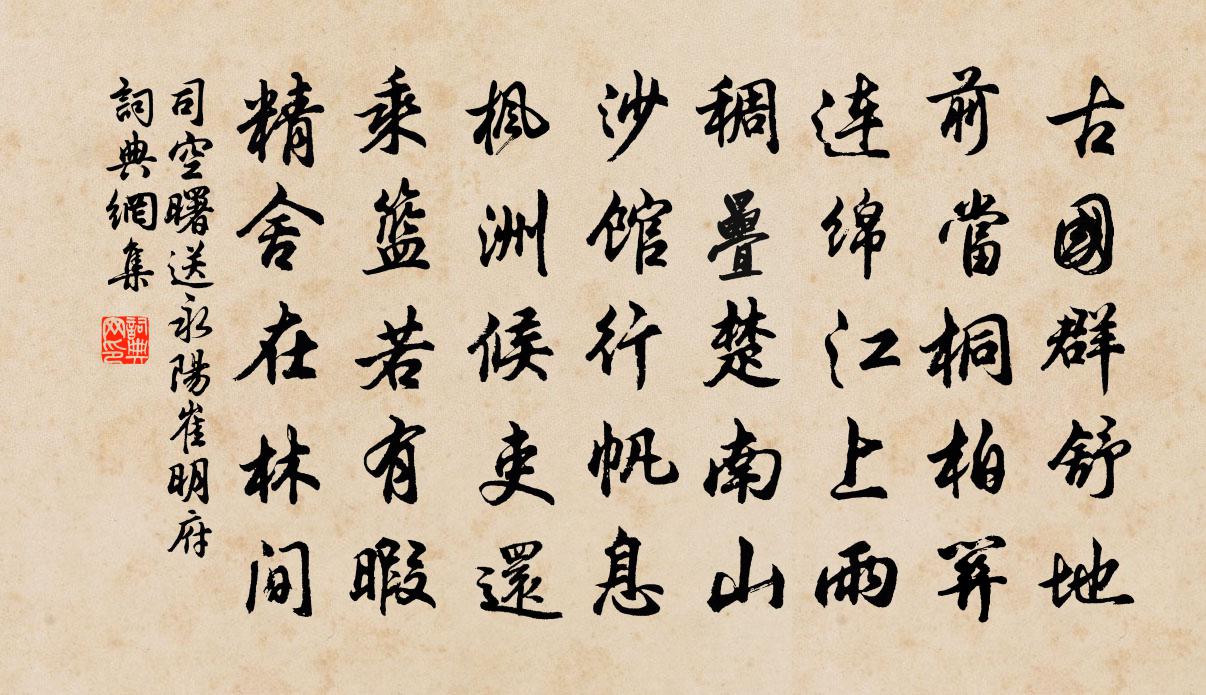 古國群舒地
前當桐柏關
连绵江上雨
稠疊楚南山
沙馆行帆息
楓洲候吏還
乘籃若有暇
精舍在林間
司空曙送永陽崔明府
詞典網集
詞典网印